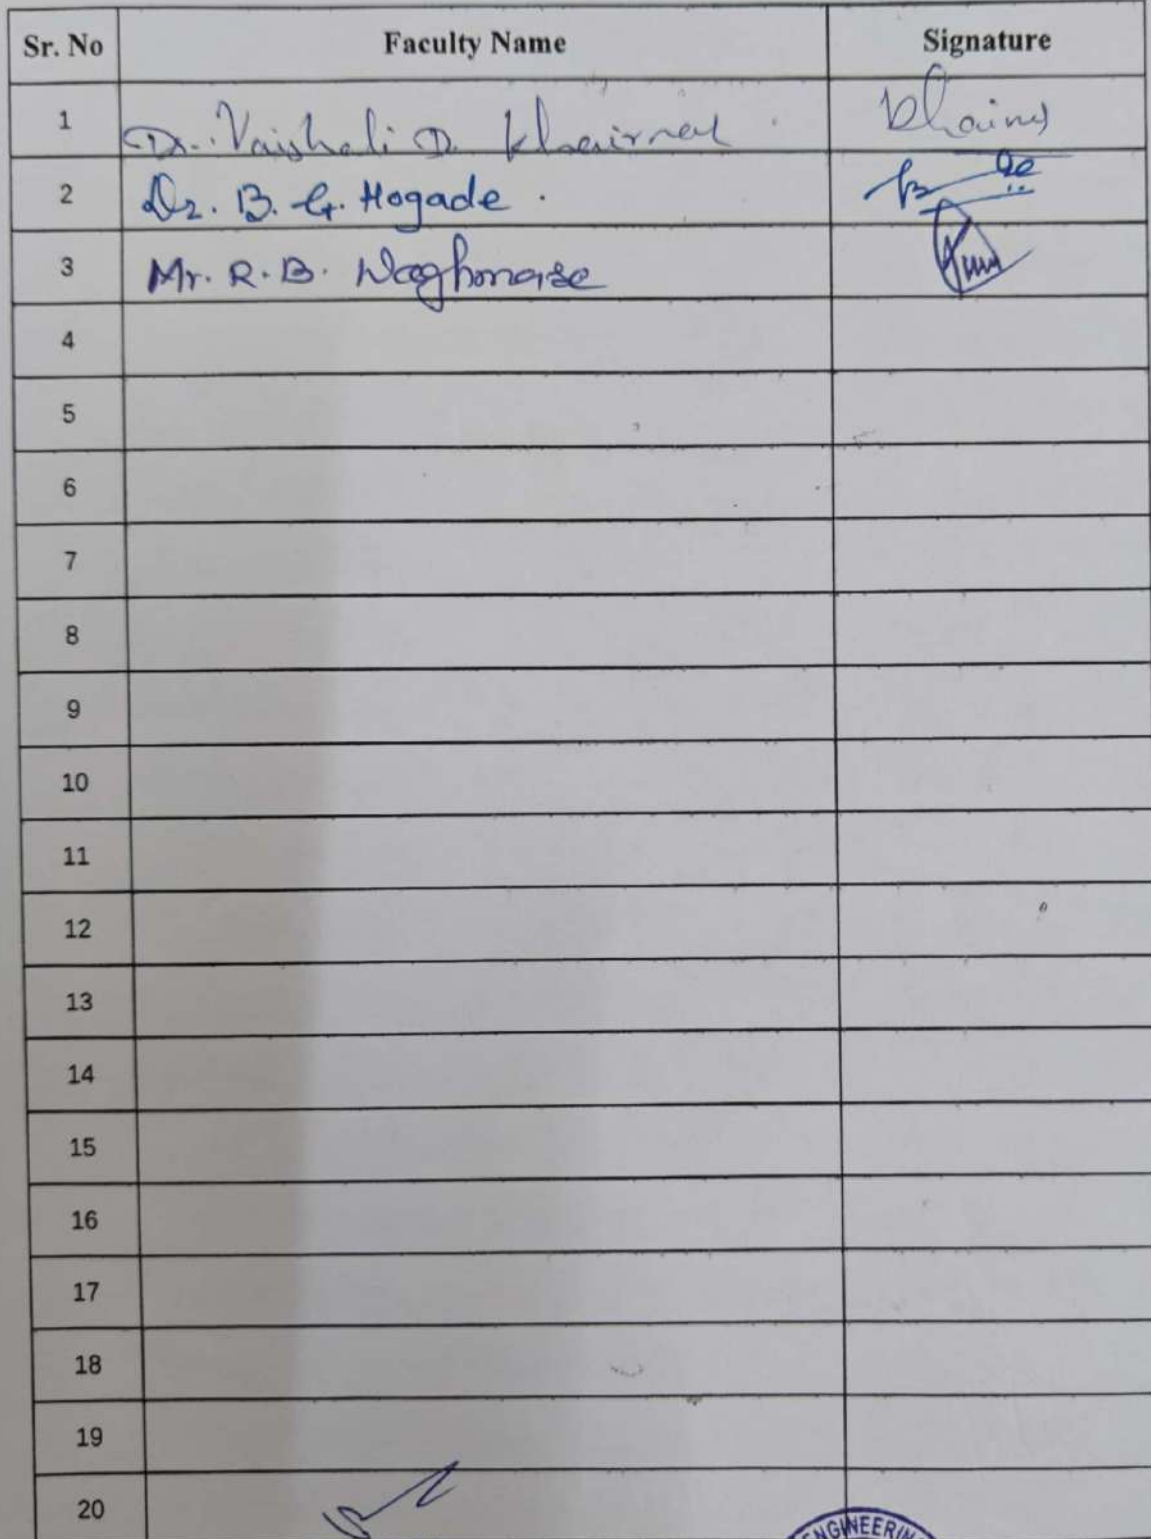 Sr. No Faculty Name Signature
1 Dr. Vaishali D. Khairnar
2 Dr. B. G. Hogade
3 Mr. R. B. Waghmare
4
5
6
7
8
9
10
11
12
13
14
15
16
17
18
19
20
ENGINEERIN